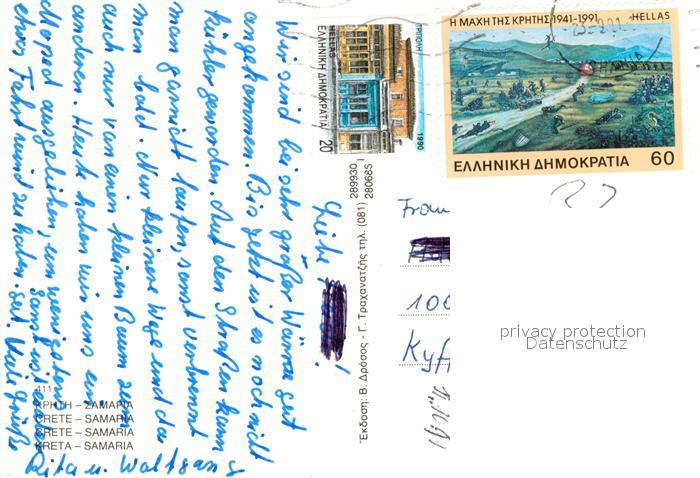 Liebe
Wir sind bei sehr großer Wärme gut
angekommen. Bis jetzt ist es noch nicht
kühler geworden. Auf den Straßen kann
man garnicht laufen, sonst verbrennt
man bald. Nur kleinere Wege und da
auch nur von einem kleinen Baum zum
anderen. Heute haben wir uns ein
Moped ausgeliehen, um wenigstens
etwas Fahrtwind zu haben. Viele Grüße
Rita u. Wolfgang
411
ΚΡΗΤΗ – ΣΑΜΑΡΙΑ
CRETE – SAMARIA
CRETE – SAMARIA
KRETA – SAMARIA
Έκδοση: Β. Δρόσος - Γ. Τραχανατζής τηλ. (081) 289930 / 280685
ΤΡΙΠΟΛΗ
1990
HELLAS
ΕΛΛΗΝΙΚΗ ΔΗΜΟΚΡΑΤΙΑ
20
Η ΜΑΧΗ ΤΗΣ ΚΡΗΤΗΣ 1941-1991 HELLAS
ΕΛΛΗΝΙΚΗ ΔΗΜΟΚΡΑΤΙΑ 60
Frau
100
Kyff
privacy protection
Datenschutz